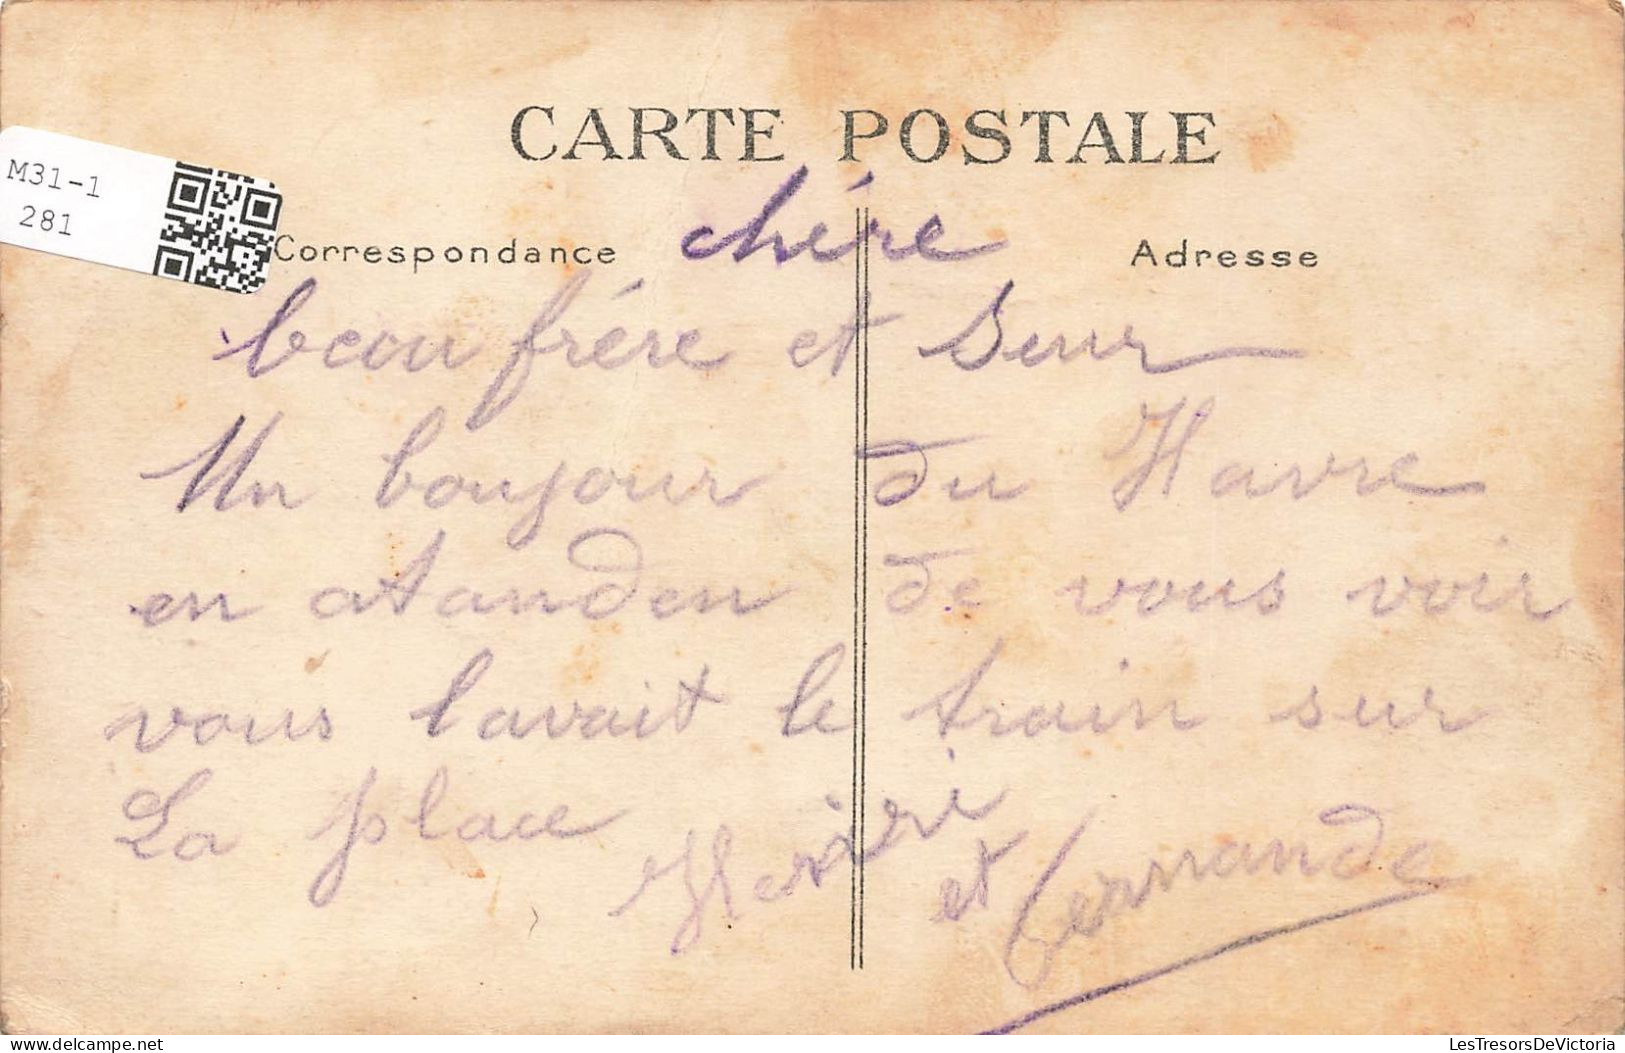 CARTE POSTALE
M31-1
281
Correspondance
Adresse
chére
beau frére et Seur
Un boujour du Havre
en atanden de vous voir
vous lavait le train sur
La place
et Fernande
delcampe.net
LesTresorsDeVictoria